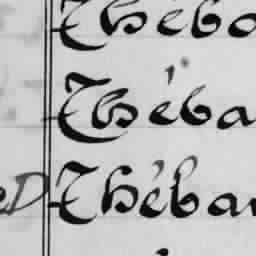 Thébo
Théba
D Théba